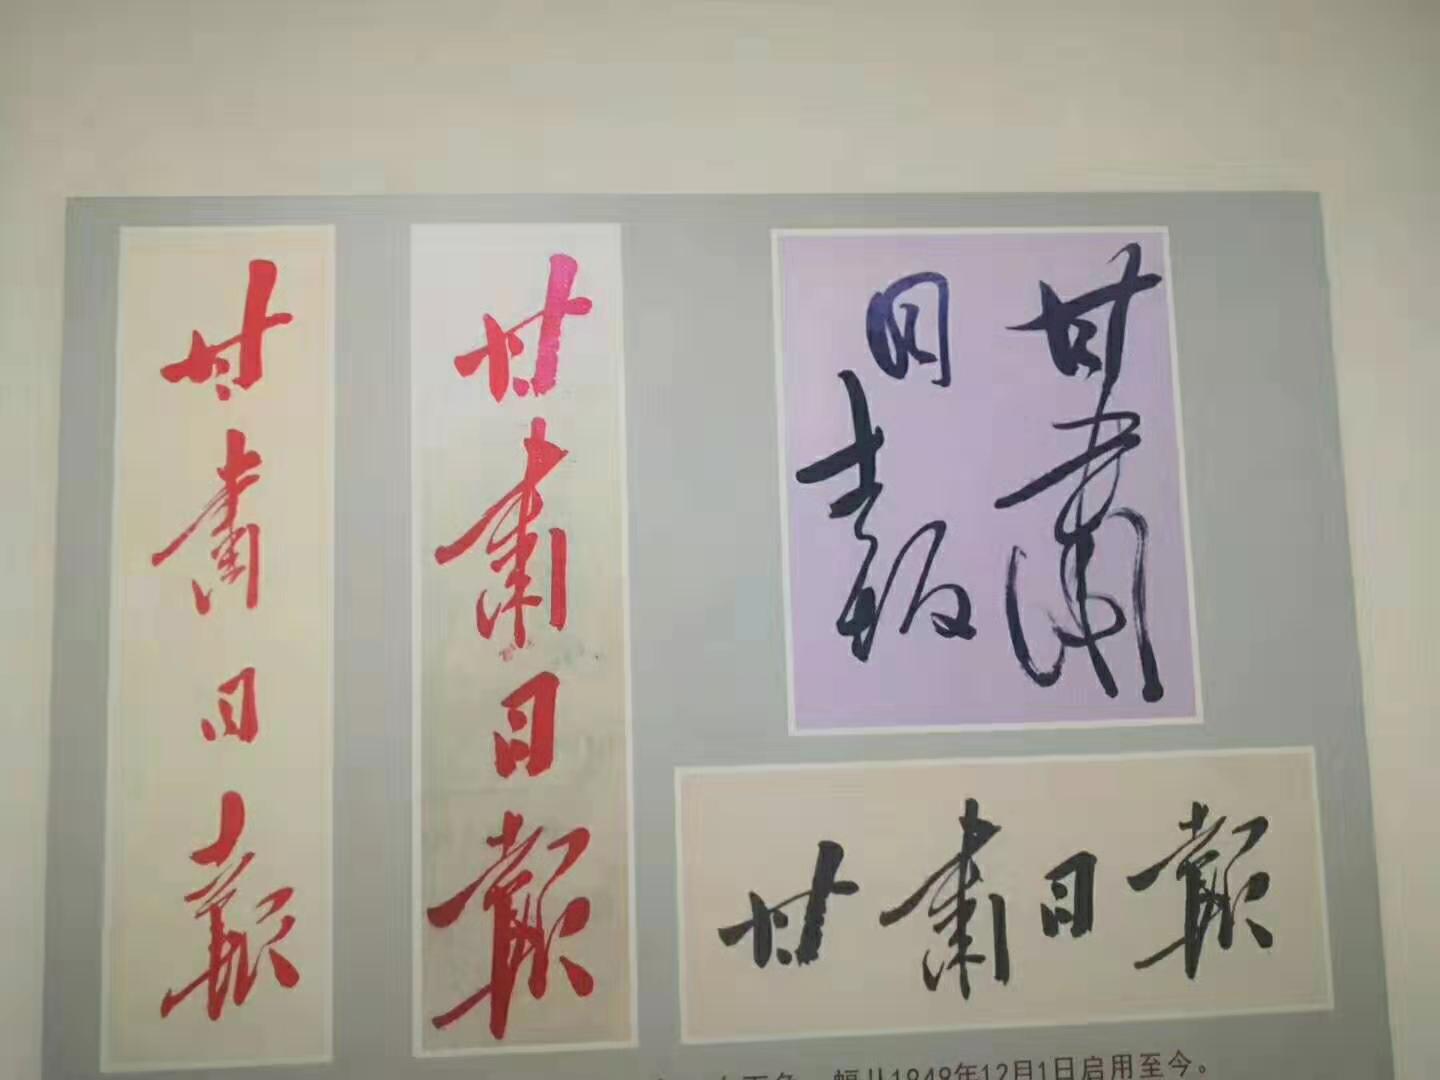 甘肅日報
甘肅日報
甘肅
日報
甘肅日報
幅从1949年12月1日启用至今。